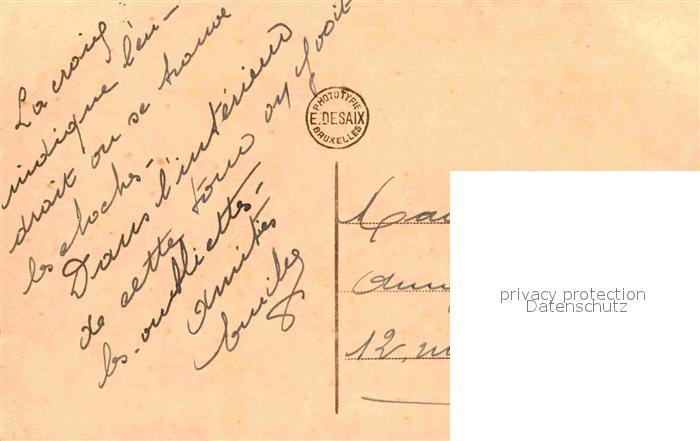 La croix
indique l'en-
droit où se trouve
les cloches -
Dans l'intérieur
de cette tour on y voit
les oubliettes -
amitiés
Emile
PHOTOTYPIE
E. DESAIX
BRUXELLES
12,
privacy protection
Datenschutz